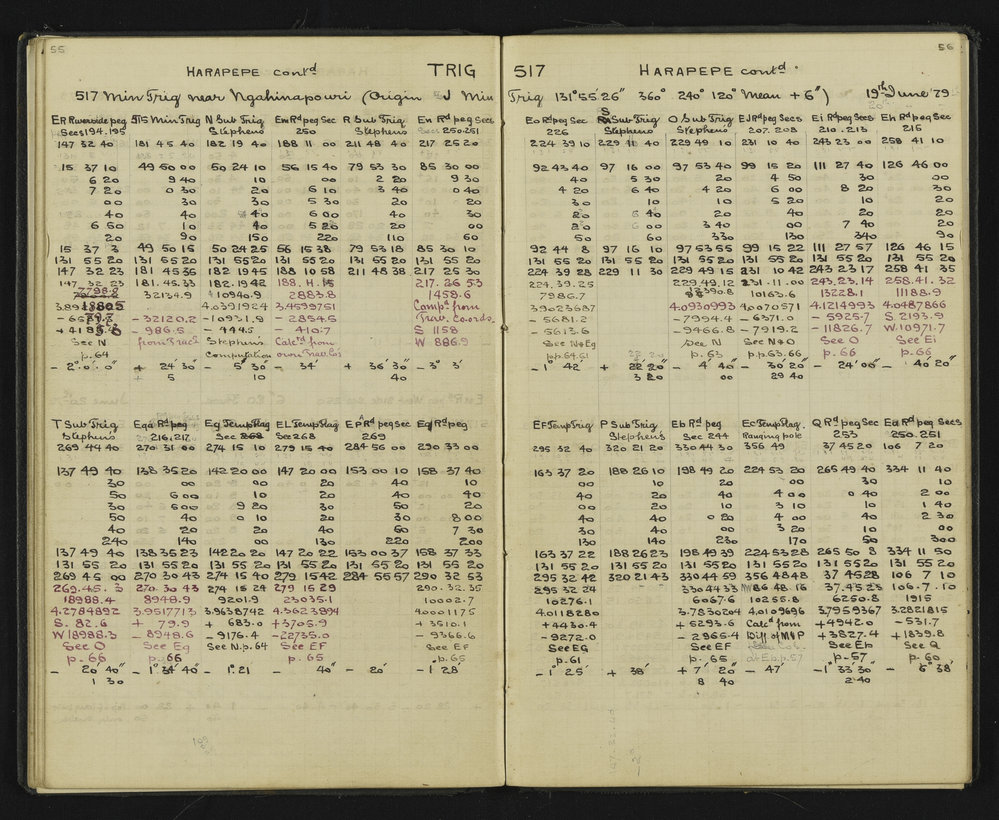 55
HARAPEPE contd TRIG
517 Min Trig near Ngahinapouri (Origin J Min
ER Riverside peg JTS Min Trig N Sub Trig Em Rd peg Sec R Sub Trig En Rd peg Secs
Secs 194.195 Stephens 250 Stephens Secs 250.251
147 32 40 181 45 40 182 19 40 188 11 00 211 48 40 217 25 20
15 37 10 49 50 00 50 24 10 56 15 40 79 53 30 85 30 00
6 20 9 40 10 00 2 20 9 30
7 20 0 30 20 6 10 3 40 0 40
00 30 30 5 30 20 20
40 40 40 6 00 40 30
6 50 10 40 5 20 20 00
20 90 150 220 110 60
15 37 3 49 50 15 50 24 25 56 15 38 79 53 18 85 30 10
131 55 20 131 55 20 131 55 20 131 55 20 131 55 20 131 55 20
147 32 23 181 45 35 182 19 45 188 10 58 211 48 38 217 25 30
147 32 23 181.45.33 182.19 42 188.11.15 217.26 53
32134.9 10940.9 2883.8 1458.6
4.0391924 3.4599751 Compd from
- 32120.2 - 10931.9 - 2854.5 Trav. Co-ords.
- 986.5 - 444.5 - 410.7 S 1158
See N from Trac Stephens Calcd from W 886.9
p.64 Computation own Trav. Cos
- 2° 0' 0" + 24' 30" - 5' 30" - 34' + 36' 30" - 3' 3"
+ 5 10 40
T Sub Trig Eqa Rd peg Eg Temp Flag EL Temp Flag EP Rd peg Sec Eq Rd peg
Stephens 216.217 Sec 268 Sec 268 269
269 44 40 270 31 00 274 15 10 279 15 40 284 56 00 290 33 00
137 49 40 138 35 20 142 20 00 147 20 00 153 00 10 158 37 40
30 00 00 20 40 10
50 6 00 10 20 40 40
30 6 00 9 20 30 50 20
50 40 0 10 20 30 8 00
40 20 20 40 60 7 30
240 140 00 130 220 200
137 49 40 138 35 23 142 20 20 147 20 22 153 00 37 158 37 33
131 55 20 131 55 20 131 55 20 131 55 20 131 55 20 131 55 20
269 45 00 270 30 43 274 15 40 279 15 42 284 55 57 290 32 53
269.45.3 270 30 43 274 15 24 279 15 29 290.32.35
18988.4 8948.9 9201.9 23035.1 10002.7
4.2784892 3.9517713 3.9638742 4.3623894 4.0001175
S. 82.6 + 79.9 + 683.0 + 3705.9 + 3510.1
W 18988.3 - 8948.6 - 9176.4 - 22735.0 - 9366.6
See O See Eg See N.p.64 See EF See EF
p.66 p.66 p.65 p.65
- 20' 40" - 1° 34' 40" - 1°.21 - 40" - 20' - 1° 28'
1 30
56
517 HARAPEPE contd
Trig 131° 55' 26" 360° 240° 120° Mean + 6") 19th June '29
Eo Rd peg Sec S Sub Trig O Sub Trig EJ Rd peg Secs Ei Rd peg Secs Eh Rd peg Sec
226 Stephens Stephens 207.208 210.213 215
224 39 10 229 11 40 229 49 10 231 10 40 243 23 00 258 41 10
92 43 40 97 16 00 97 53 40 99 15 20 111 27 40 126 46 00
40 5 30 20 4 50 30 00
4 20 6 40 4 20 6 00 8 20 30
30 10 10 5 20 10 20
20 6 40 20 40 20 20
20 6 00 3 40 00 7 40 20
50 60 330 130 340 90
92 44 8 97 16 10 97 53 55 99 15 22 111 27 57 126 46 15
131 55 20 131 55 20 131 55 20 131 55 20 131 55 20 131 55 20
224 39 28 229 11 30 229 49 15 231 10 42 243 23 17 258 41 35
224.39.25 229.49.12 231.11.00 243.23.14 258.41.32
7986.7 12390.8 10163.6 13228.1 11188.9
39023687 4.0930993 40070571 4.1214993 4.0487866
- 5681.2 - 7994.4 - 6371.0 - 5925.7 S 2193.9
- 5613.6 - 9466.8 - 7919.2 - 11826.7 W.10971.7
See N & Eg See N See N & O See O See Ei
pp.64.61 p.63 p.p.63.66 p.66 p.66
- 1° 42' + 22' 20" - 4' 40" - 30' 20" - 24' 00" - 40' 20"
3 20 00 29 40
EF Temp Trig P Sub Trig Eb Rd peg Ec Temp Flag. Q Rd peg Sec Ed Rd peg Secs
Stephens Sec 244 Ranging pole 253 250.251
295 32 40 320 21 20 330 44 30 356 49 37 45 20 106 7 20
163 37 20 188 26 10 198 49 20 224 53 20 265 49 40 334 11 40
00 10 20 00 30 10
40 20 40 4 00 0 40 2 00
00 20 10 3 10 10 1 40
40 40 0 20 4 00 40 2 30
30 40 00 3 20 10 00
40 140 230 170 50 300
163 37 22 188 26 23 198 49 39 224 53 28 265 50 8 334 11 50
131 55 20 131 55 20 131 55 20 131 55 20 131 55 20 131 55 20
295 32 42 320 21 43 330 44 59 356 48 48 37 45 28 106 7 10
295 32 24 330 44 33 86 48 15 37.45 23 106.7.10
10276.1 6067.6 10255.8 6250.8 1915
4.0118280 3.7830204 4.0109696 3.7959367 3.2821815
+ 4430.4 + 5293.6 Calcd from + 4942.0 - 531.7
- 9272.0 - 2965.4 Diff of M & P + 3827.4 + 1839.8
See EG See EF at Eo.p.57 See Eb See Q
p.61 p.65 p.57 p.60
- 1° 25' + 38' + 7' 20" - 47' - 1° 33' 30" - 6° 38'
8 40 2 40